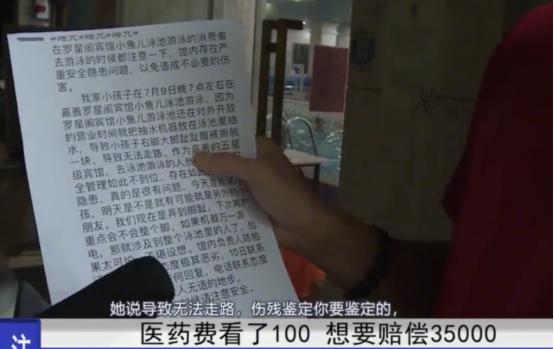 在罗星阁宾馆小鱼儿泳池游泳的消费者
去游泳的时候都注意一下，馆内存在严
重安全隐患问题，以免造成不必要的伤
害。
我家小孩子在7月9日晚7点左右在
嘉善罗星阁宾馆小鱼儿泳池游泳，因为
罗星阁宾馆小鱼儿泳池游泳还在对外开放
的营业时间就把抽水机器放在泳池里抽
水，导致小孩子右脚大脚趾趾腹被撕脱
一块，导致无法走路，作为嘉善的五星
级宾馆，去泳池游泳的人
全管理如此不到位，存在如此
隐患，真的是很有问题，今天是我家小
孩，明天是不是就有可能就是另外的小
朋友。我们现在是弄到脚趾，下次再严
重点会不会整个脚，如果机器万一漏
电，那就涉及到整个泳池里的人了，后
果太可怕，不堪设想。馆内负责人陈
态度极其恶劣，10日联系
任何回复，电话联系态度
人无语的地步。
请注意安全，
她说导致无法走路，伤残鉴定你要鉴定的，
注
医药费看了100 想要赔偿35000